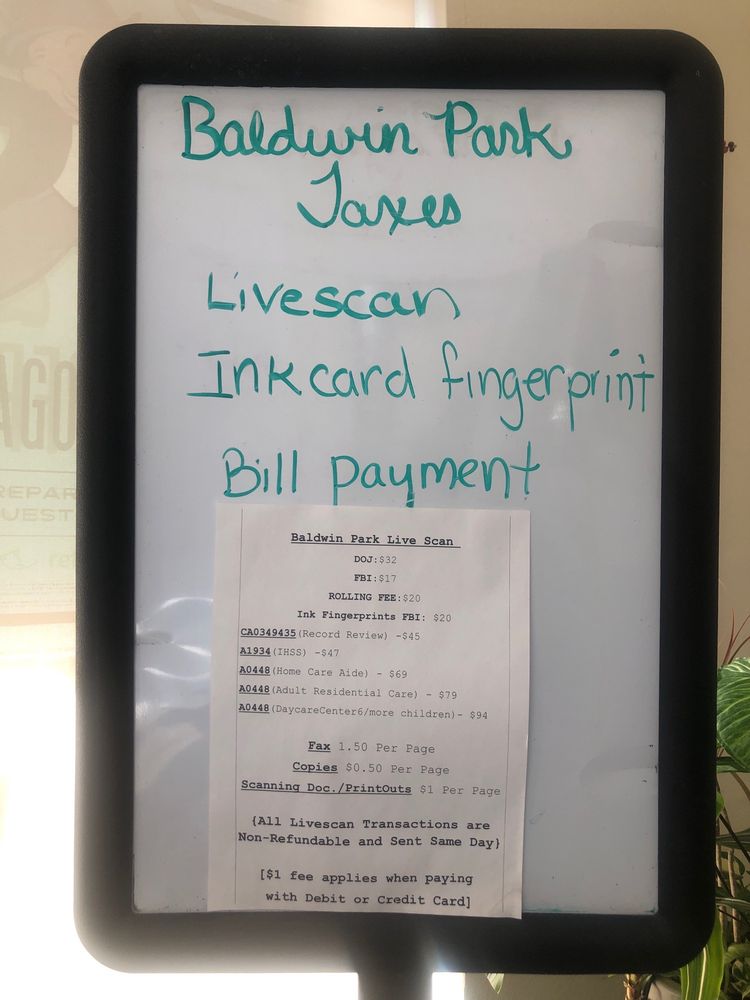 Baldwin Park
Taxes
Livescan
Ink card fingerprint
Bill payment
Baldwin Park Live Scan
DOJ:$32
FBI:$17
ROLLING FEE:$20
Ink Fingerprints FBI: $20
CA0349435(Record Review) -$45
A1934(IHSS) -$47
A0448(Home Care Aide) - $69
A0448(Adult Residential Care) - $79
A0448(DaycareCenter6/more children)- $94
Fax 1.50 Per Page
Copies $0.50 Per Page
Scanning Doc./PrintOuts $1 Per Page
{All Livescan Transactions are
Non-Refundable and Sent Same Day}
[$1 fee applies when paying
with Debit or Credit Card]